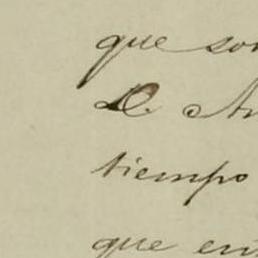 que son
D. An
tiempo
que en